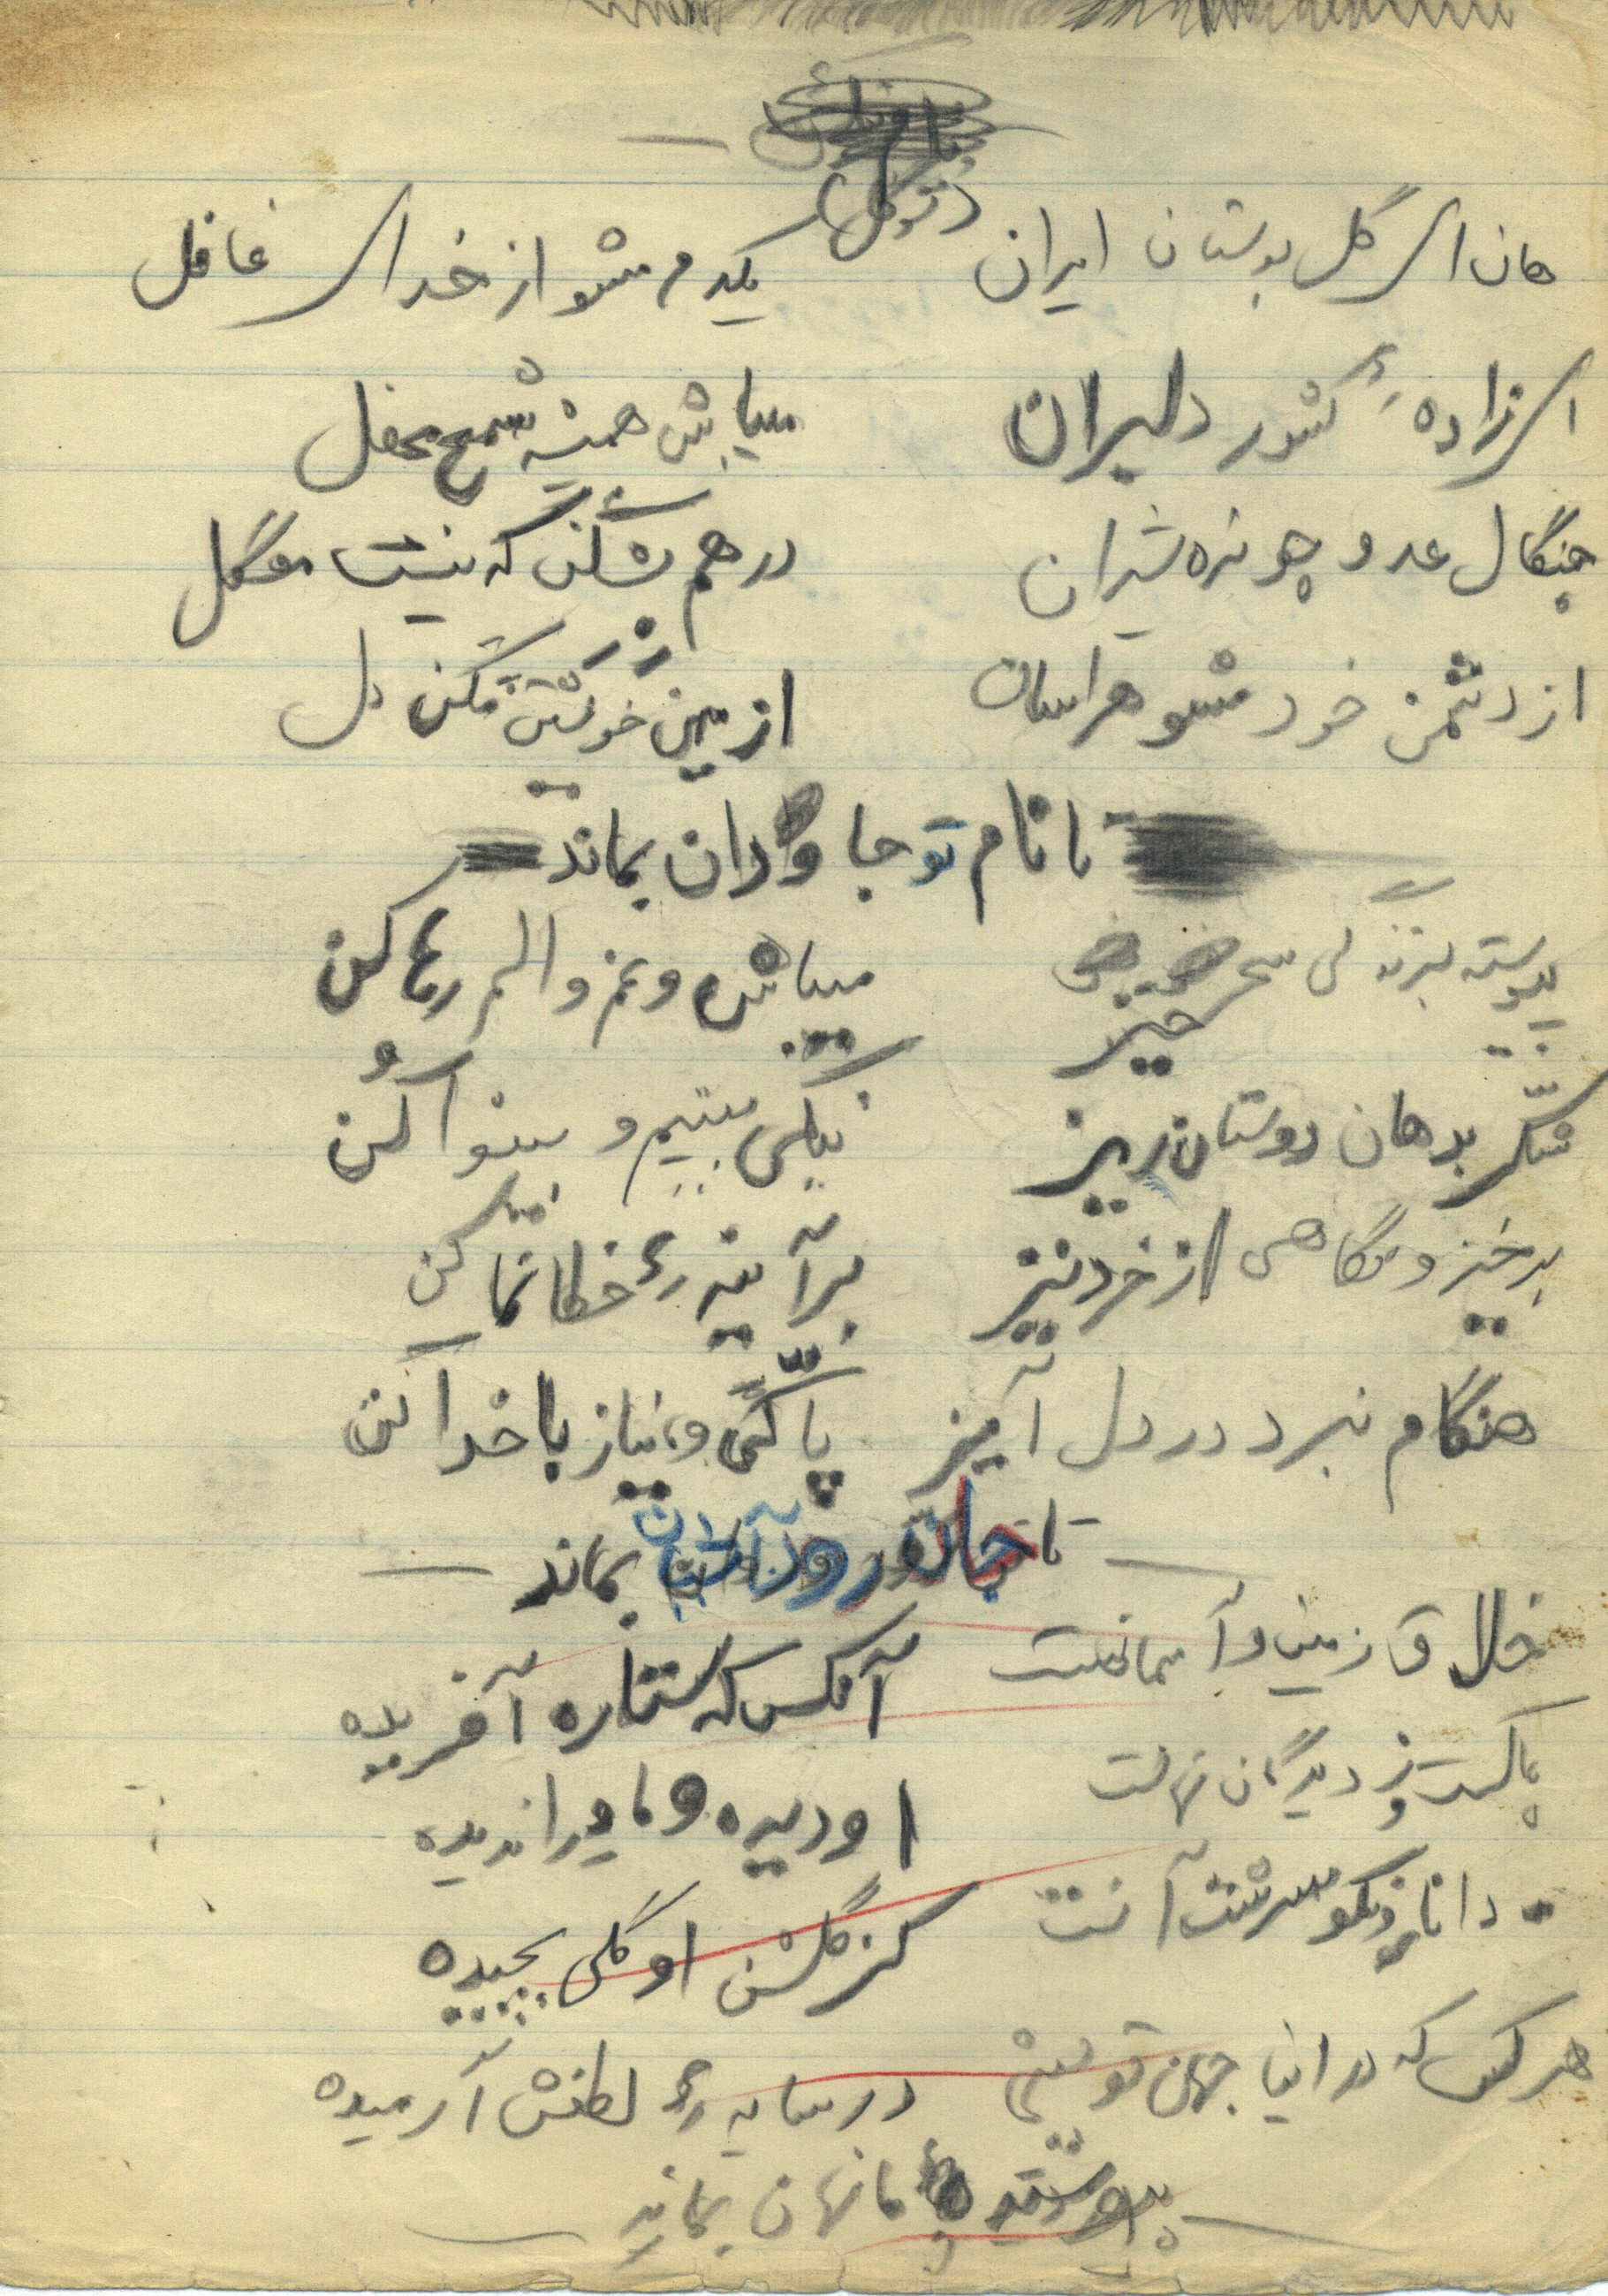 (توکل)
هان ای گل بوستان ایران یکدم مشو از خدای غافل
ای زادهٔ کشور دلیران میباش همیشه شمع محفل
چنگال عدو چو نره شیران در هم بشکن که نیست مشگل
از دشمن خود مشو هراسان از میهن خویشتن مکن دل
تا نام تو جاودان بماند
پیوسته بزندگی سحر خیز میباش و غم و الم رها کن
شکر بدهان دوستان ریز نیکی به یتیم و بینوا کن
برخیز و نگاهی از خرد نیز بر آینهٔ خطا نما کن
هنگام نبرد در دل آمیز پاکی و نیاز با خدا کن
تا جان و روان بماند
خلاق زمین و آسمانست آنکس که ستاره آفریده
پاکست و ز دیدگان نهانست او دیده و ما ورا ندیده
دانای نکو سرشت آنست کز گلشن او گلی بچیده
هر کس که در اینجهان تو بینی در سایهٔ لطفش آرمیده
پیوسته نهان بماند